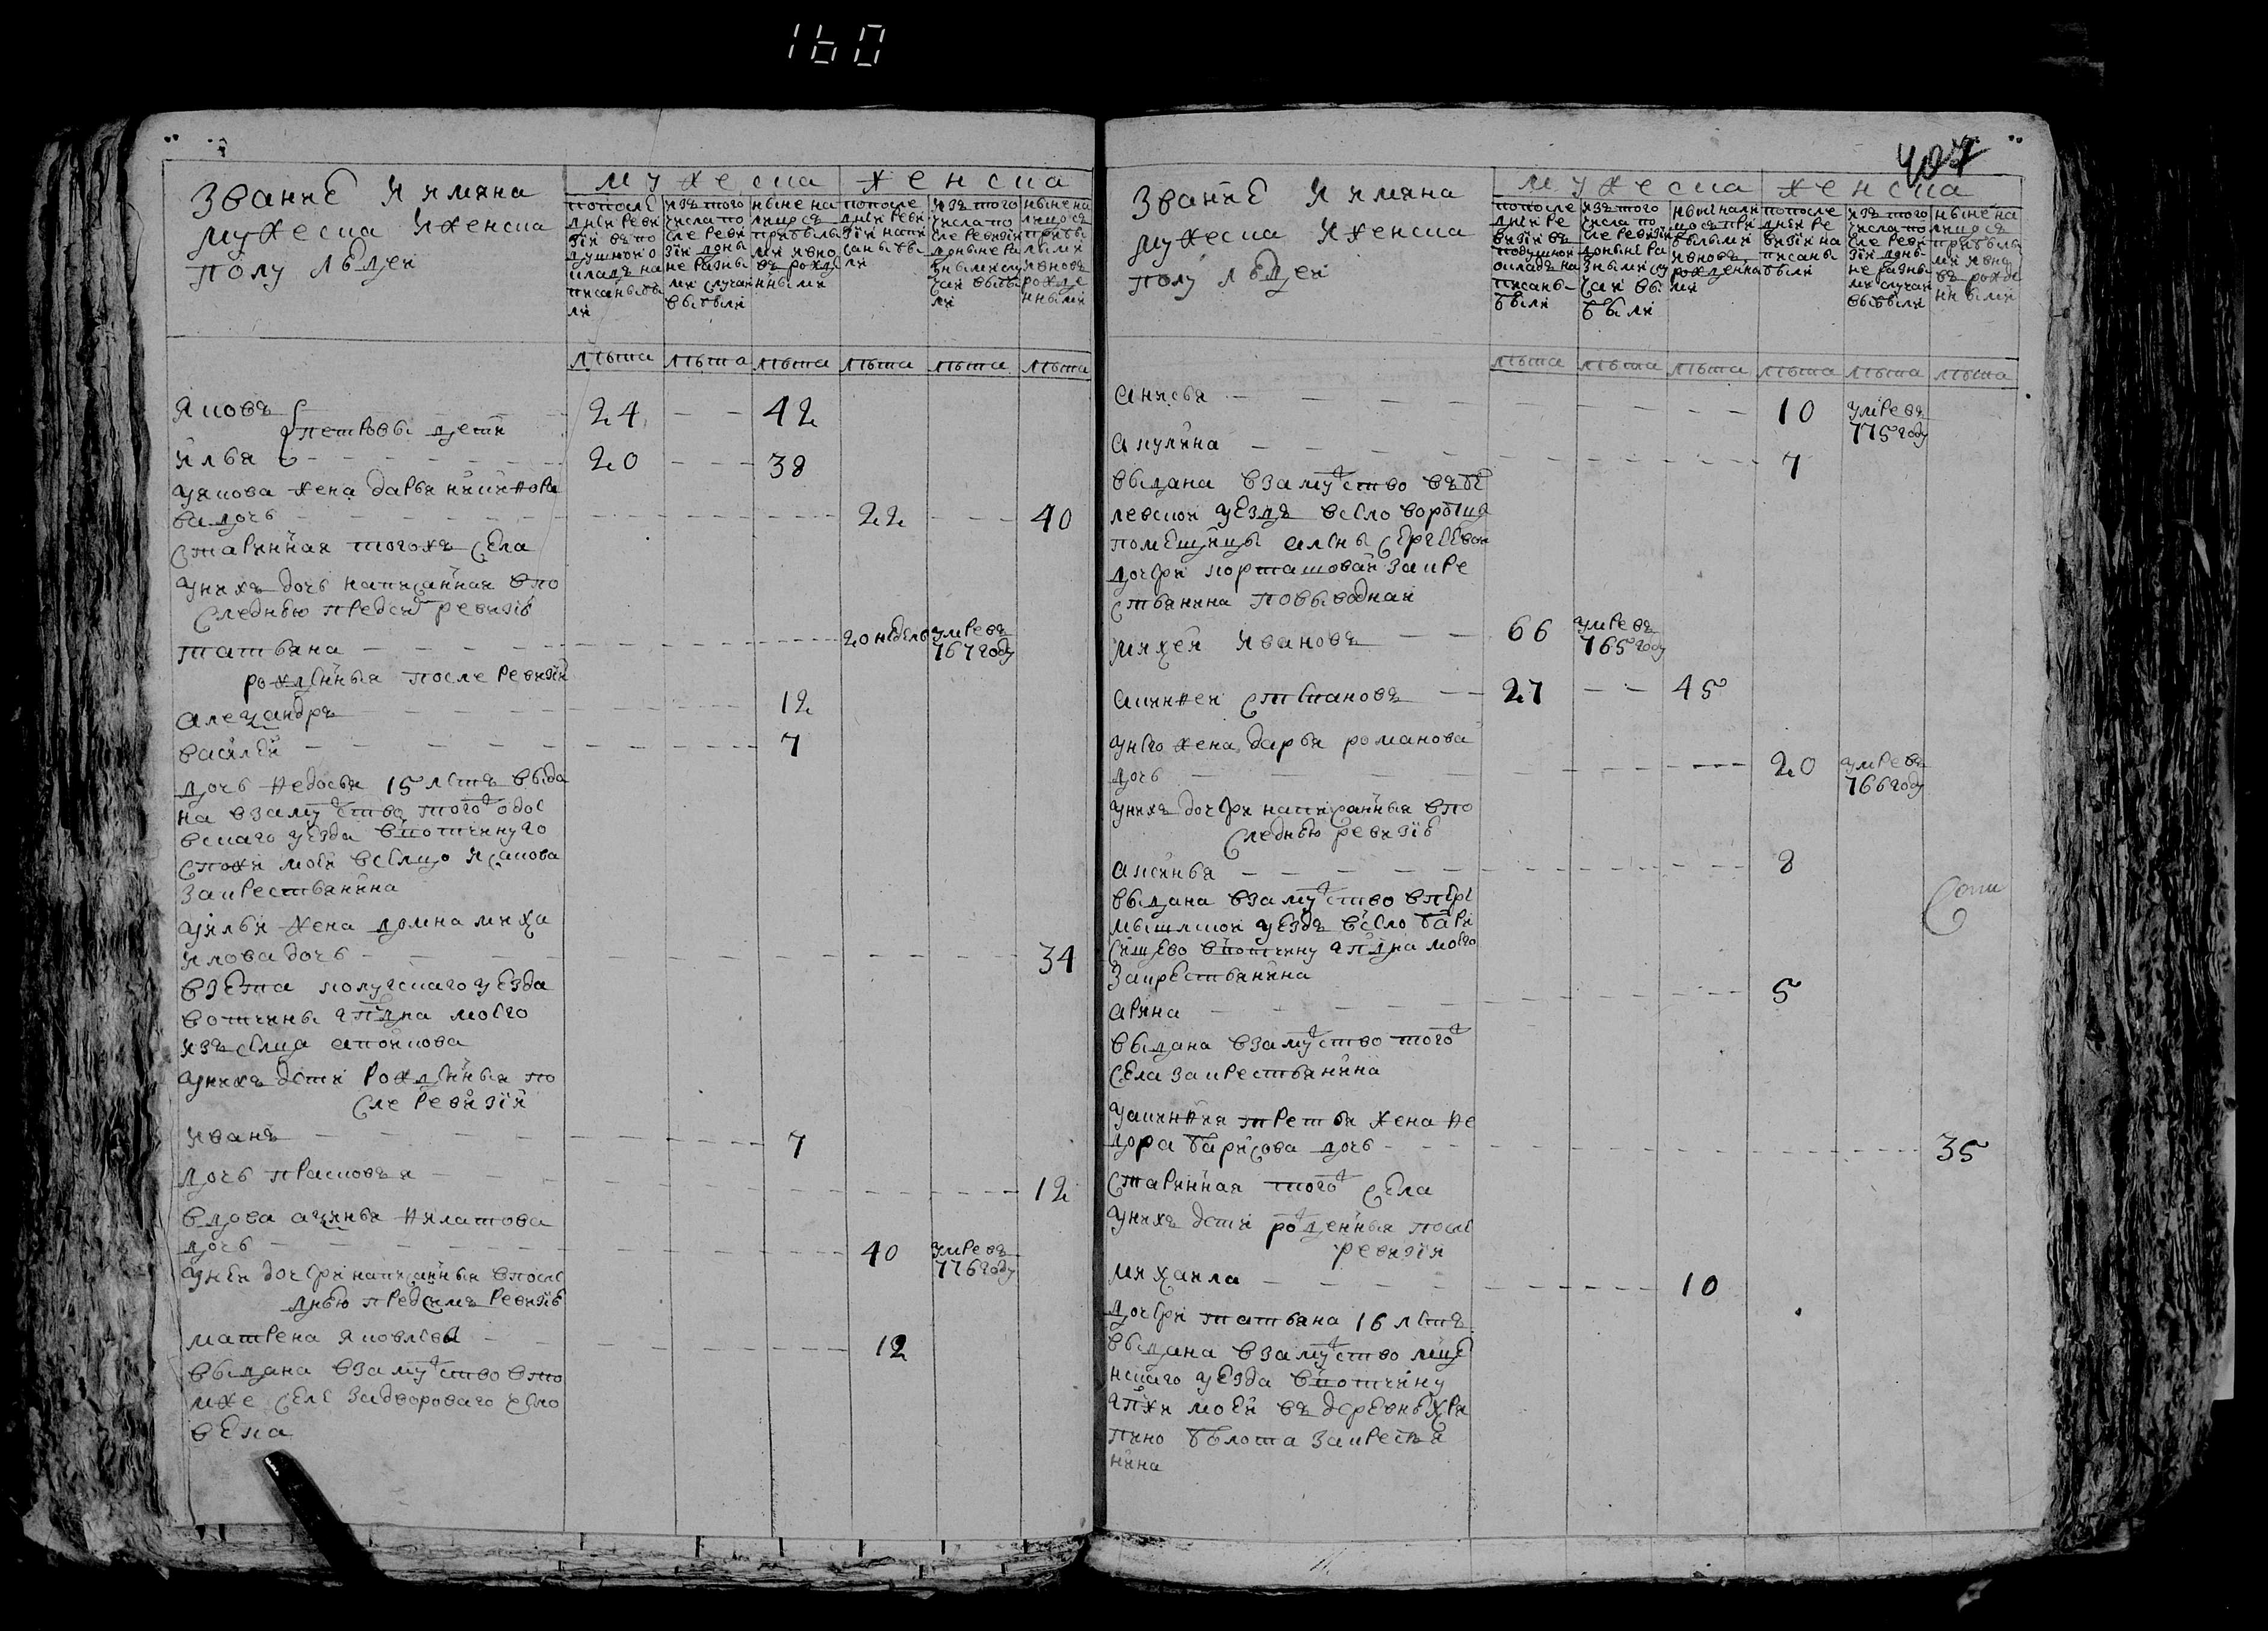 160
званиѣ и имяна
мужеска и женска
полу людеи
мужеска
женска
попосле
днеи реви
зіи въ по
душнои о
кладъ на
писаны бы
ли
изъ того
числа по
сле реви
зіи доны
не разны
ми случаи
выбыли
ныне на
лицо съ
прибылы
ми и вно
въ рожде
нными
попосле
днеи реви
зіи напи
саны бы
ли
изъ того
числа по
сле ревизіи
доныне ра
зными слу
чаи выбы
ли
ныне на
лицо съ
прибы
лыми
и вновь
рожде
нными
лѣта лѣта лѣта лѣта лѣта лѣта
яковъ 24 — — 42
петровы дети
илья 20 — — 38
у якова жена дарья никифоро
ва дочь 22 — — 40
старинная тогожъ села
у нихъ дочь написанная в по
следнею пред сей ревизіе
татьяна 20 недель умре въ
767 году
рожденныя после ревизіи
александръ 12
василеи 7
дочь федосья 15 летъ выда
на в замужство того ж одое
вскаго уезда в вотчину го
спожи моеи в селцо
за крестьянина
у ильи жена домна миха
илова дочь 34
взета калужскаго уезда
вотчины гпдна моего
изъ селца
у нихъ дети рожденныя по
сле ревизіи
иванъ 7
дочь прасковья 12
вдова аксинья филатова
дочь 40 умре въ
776 году
у неи дочери написанныя в после
днею пред симъ ревизіе
матрена яковлева 12
выдана в замужство в то
мже селе за дворового чело
века
407
званиѣ и имяна
мужеска и женска
полу людеи
мужеска
женска
попосле
днеи ре
визіи въ
подушнои
окладъ на
писаны
были
изъ того
числа по
сле ревизіи
доныне ра
зными слу
чаи вы
были
ныне нали
цо съ при
былыми
и вновь
рожденны
ми
попосле
днеи ре
визіи на
писаны
были
изъ того
числа по
сле реви
зіи доны
не разны
ми случаи
выбыли
ныне на
лицо съ
прибылы
ми и вно
въ рожде
нными
лѣта лѣта лѣта лѣта лѣта лѣта
анисья 10 умре въ
775 году
акулина 7
выдана в замужство въ бе
левскои уездъ в село
помещицы алены сергеевои
дочери за кре
стьянина по выводнаи
михеи ивановъ 66 умре въ
765 году
акинфеи степановъ 27 — — 45
у него жена дарья романова
дочь 20 умре въ
766 году
у нихъ дочери написанныя в по
следнею ревизіе
аксинья 8
выдана в замужство в пере
мышлскои уездъ в село бори
сищево в вотчину гпдна моего
за крестьянина
арина 5
выдана в замужство того ж
села за крестьянина
у акинфия третья жена фе
дора барисова дочь 35
старинная того ж села
у нихъ дети рожденныя после
ревизіи
михаила 10
дочери татьяна 16 летъ
выдана в замужство мце
нскаго уезда в вотчину
гпжи моеи въ деревню
за крестья
нина